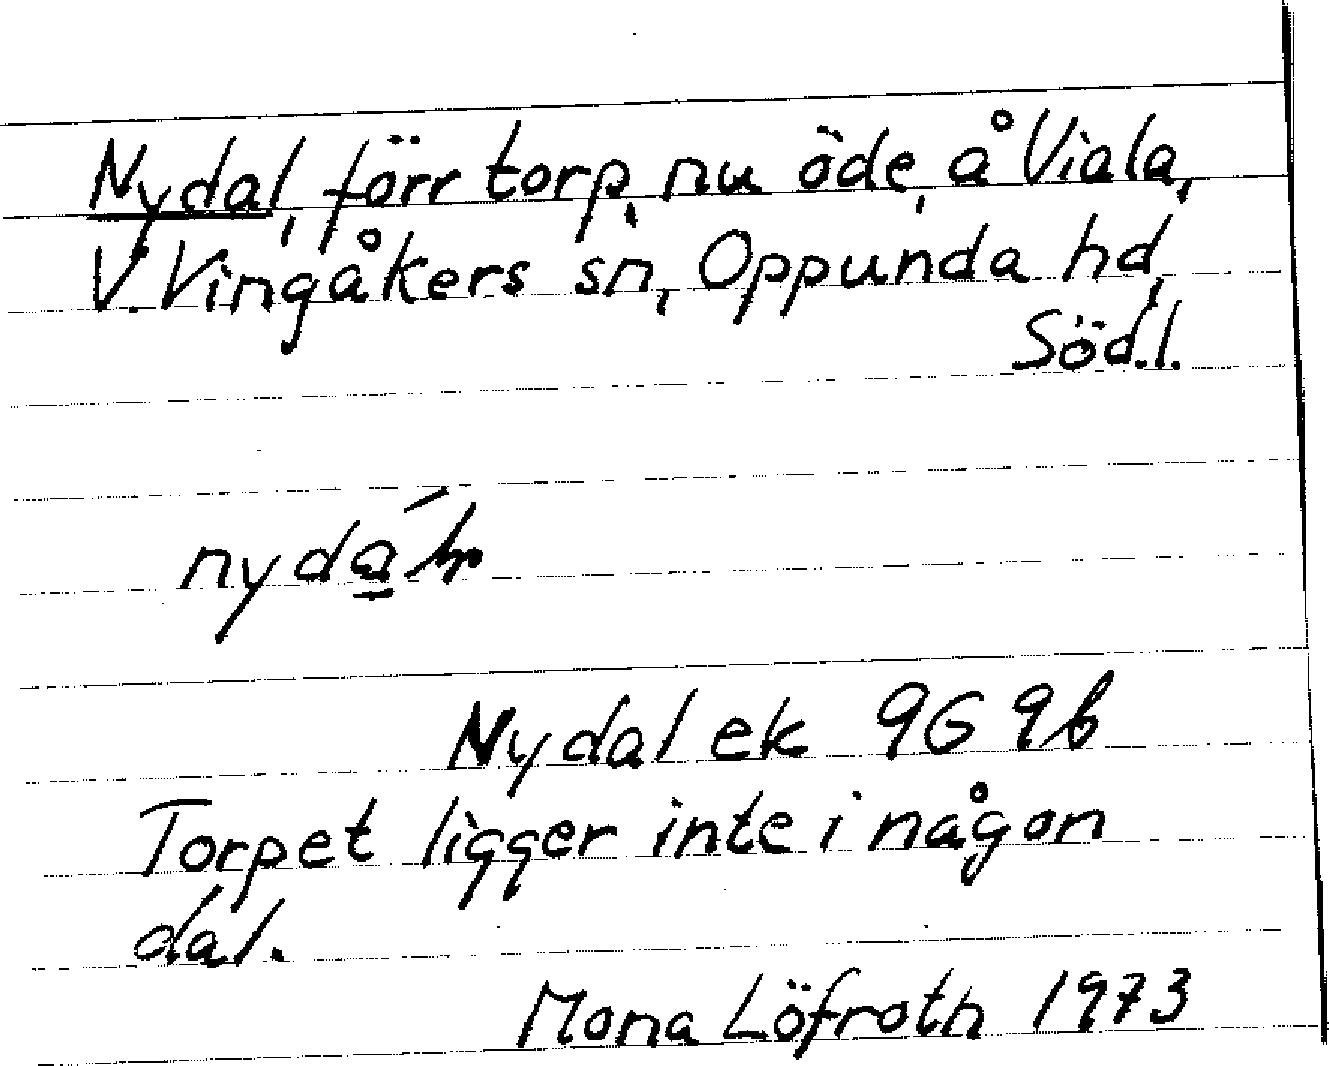 Nydal, förr torp, nu öde, å Viala,
V. Vingåkers sn, Oppunda hd,
Söd.l.
Nydal ek 9G 9b
Torpet ligger inte i någon
dal.
Mona Löfroth 1973